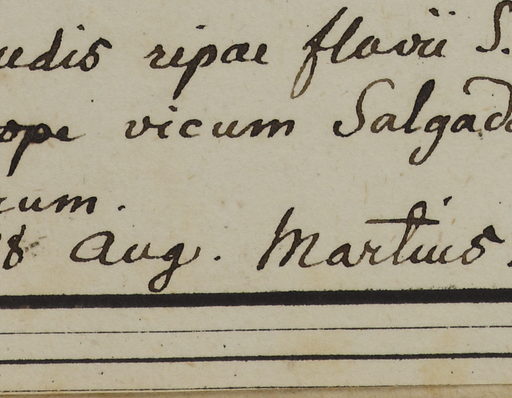 udis ripae flavii S.
ope vicum Salgado
cum.
8 Aug. Martius.